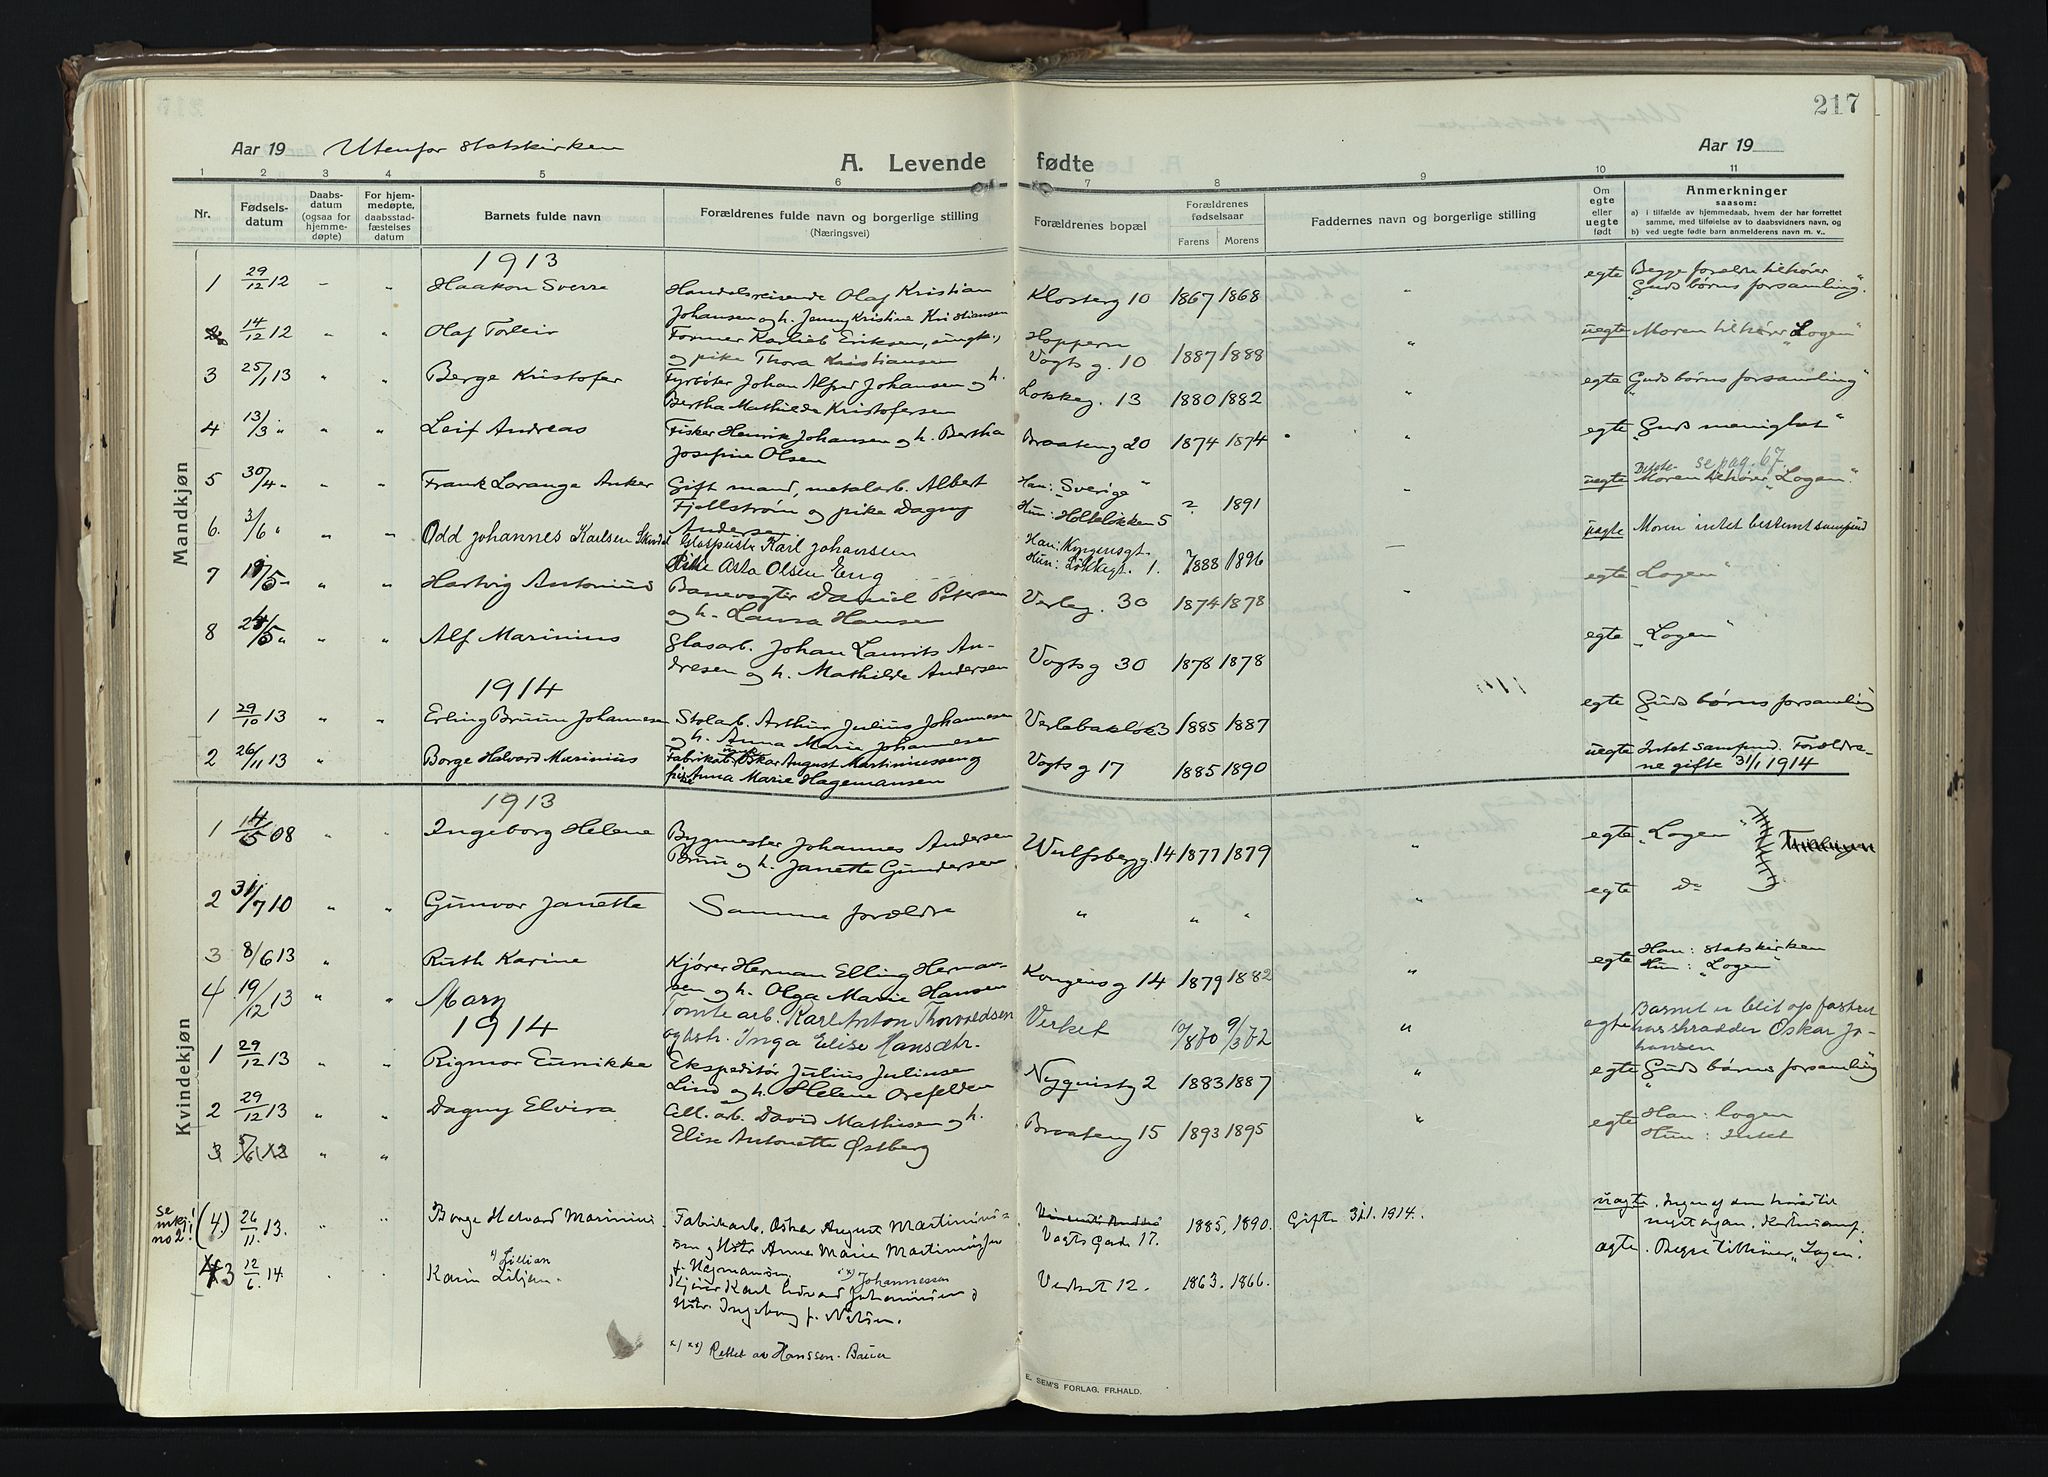 217
Aar 19 Utenfor statskirken
A. Levende fødte
Aar 19
1 2 3 4 5 6 7 8 9 10 11
Nr.
Fødsels-
datum
Daabs-
datum
(ogsaa for
hjemme-
døpte)
For hjem-
medøpte,
daabsstad-
fæstelses
datum
Barnets fulde navn
Forældrenes fulde navn og borgerlige stilling
(Næringsvei)
Forældrenes bopæl
Forældrenes
fødselsaar
Farens Morens
Faddernes navn og borgerlige stilling
Om
egte
eller
uegte
født
Anmerkninger
saasom:
a) i tilfælde av hjemmedaab, hvem der har forrettet
samme, med tilføielse av to daabsvidners navn, og
b) ved uegte fødte barn anmelderens navn m. v..
Mandkjøn
1913
1 29/12 12 Haakon Sverre Handelsreisende Olaf Kristian Klosterg 10 1867 1868 egte Begge forældre tilhører
Johansen og h. Jenny Kristine Kristiansen "Guds børns forsamling."
2 14/12 12 Olaf Torleiv Former Karlieb Eriksen, ungk., Hoppern uegte Moren tilhører "Logen"
og pike Thora Kristiansen Vogts g. 10 1887 1888
3 25/1 13 Berge Kristofer Fyrbøter Johan Alfred Johansen og h. Løkkeg. 13 1880 1882 egte "Guds børns forsamling"
Bertha Mathilde Kristofersen
4 13/3 " Leif Andreas Fisker Henrik Johansen og h. Bertha Braateng 20 1874 1874 egte "Guds menighet"
Josefine Olsen
5 30/4 " Frank Lorange Anker Gift mand, metalarb. Albert Han: "Sverige" ? 1891 uegte Døbt se pag. 67.
Fjellstrøm og pike Dagny Hun: Holteløkken 5 Moren tilhører "Logen".
Andersen
6. 3/6 " Odd Johannes Karlsen Glaspuster Karl Johansen Han: Kongensgt. uægte Moren intet bestemt samfund
Pike Asta Olsen Eng Hun: Løkkegt. 1. 1888 1896
7 18/5 " Hartvig Antonius Banevogter Daniel Petersen Verleg. 30 1874 1878 egte "Logen"
og h. Laura Hansen
8 24/5 " Alf Marinius Glasarb. Johan Laurits An- Vogts g 30 1878 1878 egte "Logen"
dresen og h. Mathilde Andersen
1914
1 29/10 13 Erling Bruun Johannesen Stolarb. Arthur Julius Johannesen Verlebakløk 3 1885 1887 egte "Guds børns forsamling"
og h. Anna Marie Johannesen
2 26/11 13 Borge Halvard Marinius Fabrikarb. Oskar August Martiniussen og Vogts g 17 1885 1890 uegte Intet samfund. Forældre-
pike Anna Marie Hagemansen ne gifte 31/1 1914
Kvindekjøn
1913
1 14/5 08 Ingeborg Helene Bygmester Johannes Andersen Wulfsbergg. 14 1877 1879 egte "Logen"
Bruun og h. Janette Gundersen
2 31/7 10 Gunvor Janette Samme forældre " " " egte Do
3 8/6 13 Ruth Karine Kjører Herman Elling Herman- Kongens g 14 1879 1882 egte Han: Statskirken
sen og h. Olga Marie Hansen Hun: "Logen"
4 19/12 13 Mary Tomte arb. Karl Anton Thorvaldsen Verket egte Barnet er blit op fostret
og hstr. Inga Elise Hansdtr. hos skrædder Oskar Jo-
hansen
1914
1 29/12 13 Rigmor Eunikke Ekspeditør Julius Juliusen Nyquistg 2 1883 1887 egte "Guds børns forsamling"
Lind og h. Helene Orefelden
2 29/12 13 Dagny Elvira Cell. arb. David Mathisen og h. Braateng 15 1893 1895 egte Han: Logen
Elise Antonette Østberg Hun: Intet
3 5/6 13
se mkj! no 2! (4.) 26/11. 13. Borge Halvard Marinius. Fabrikarb. Oskar August Martinius- Vogts Gade 17. 1885. 1890. Gifte 31.1.1914. uægte. Ingen af dem hører til
sen og Hstr Anna Marie Martiniussen
f. Hagmansen
3 12/6. 14. Karin Liljan. x) Lillian Kjører Karl Edvard Johannesen xx) Johannessen Verket 12. 1863. 1866. ægte. Begge tilhører "Logen".
Hstr. Ingeborg f. Nilsen.
x) xx) Rettet av Hanssen-Bauer
E. SEM'S FORLAG, FR.HALD.